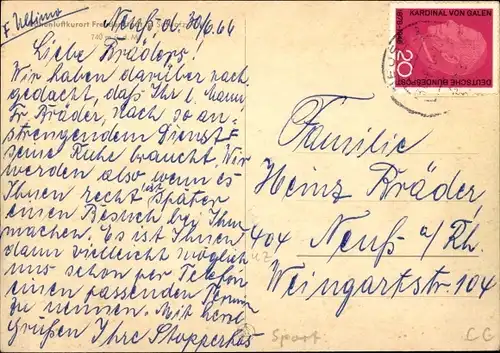 Neuß d. 30/6.66
Höhenluftkurort
740 m ü. d. M.
Liebe Bräders!
Wir haben darüber nach
gedacht, daß Ihr l. Mann
Fr. Bräder, nach so an-
strengendem Dienst
seine Ruhe braucht. Wir
werden also wenn es
Ihnen recht ist später
einen Besuch bei Ihnen
machen. Es ist Ihnen
dann vielleicht möglich
uns schon per Telefon
einen passenden Termin
zu nennen. Mit herzl
Grüßen Ihre
KARDINAL VON GALEN
1878 1946
20
DEUTSCHE BUNDESPOST
Familie
Heinz Bräder
404 Neuß a/Rh.
Weingartstr. 104
Sport
CG